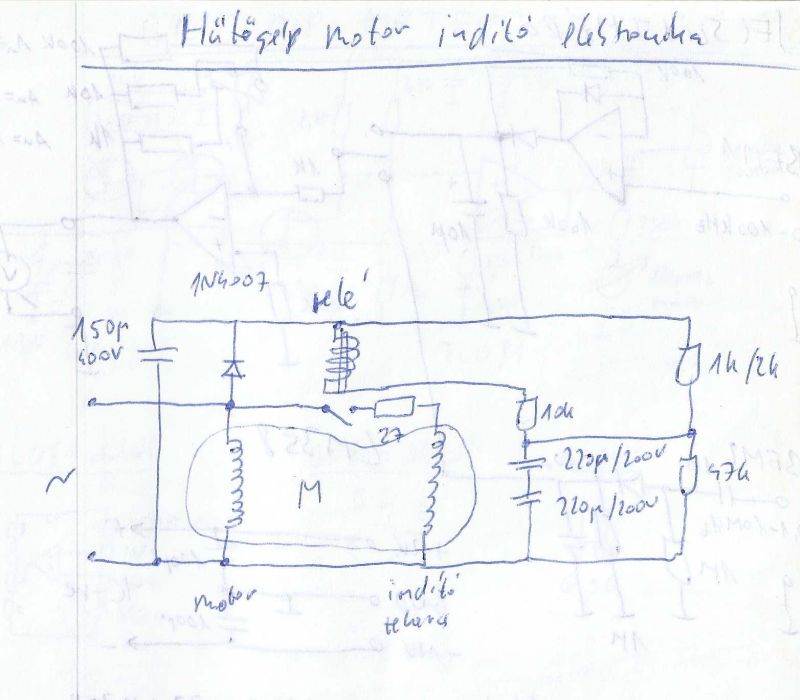 Hűtőgép motor indító elektronika
1N4007
relé
150µ
400V
1k/2k
10k
27
220µ/200V
47k
M
220µ/200V
~
motor
indító
tekercs